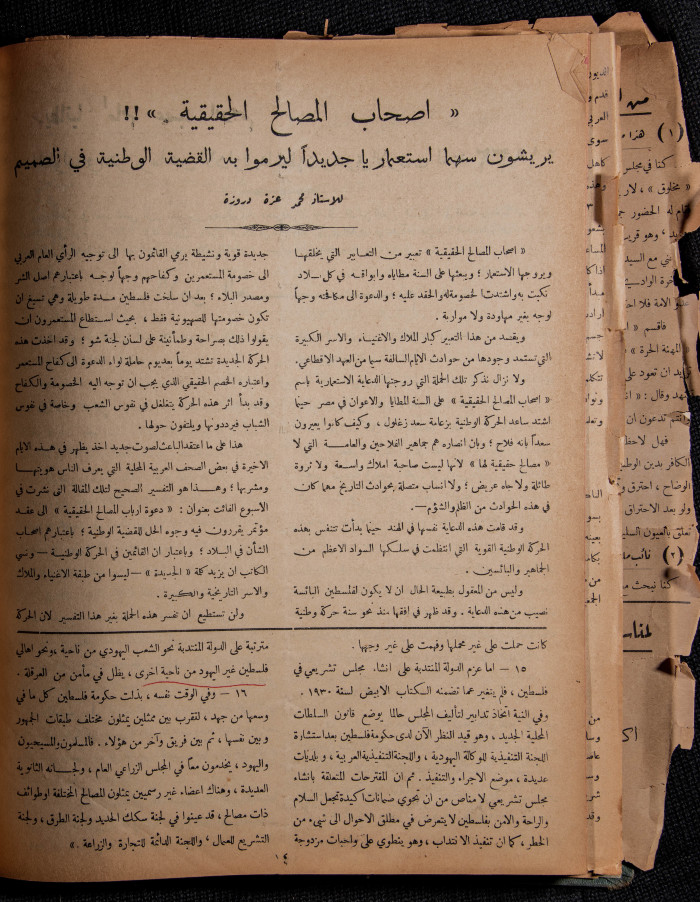 « اصحاب المصالح الحقيقية . » !!
يريشون سهما استعماريا جديداً ليرموا به القضية الوطنية في الصميم
للاستاذ محمد عزة دروزة
« اصحاب المصالح الحقيقية » تعبير من التعابير التي يخلقها
ويروجها الاستعمار ؛ ويبعثها على السنة مطاياه وابواقه في كل بلاد
نكبت به واشتدت الخصومة له والحقد عليه ؛ والدعوة الى مكافحته وجهاً
لوجه بغير مهاودة ولا مواربة .
ويقصد من هذا التعبير كبار الملاك والاغنياء والاسر الكبيرة
التي تستمد وجودها من حوادث الايام السالفة سيما من العهد الاقطاعي.
ولا نزال نذكر تلك الحملة التي روجتها الدعاية الاستعمارية باسم
« اصحاب المصالح الحقيقية » على السنة المطايا والاعوان في مصر حينما
اشتد ساعد الحركة الوطنية بزعامة سعد زغلول ، وكيف كانوا يعيرون
سعداً بانه فلاح ؛ وبان انصاره هم جماهير الفلاحين والعامة التي لا
« مصالح حقيقية لها » لانها ليست صاحبة املاك واسعة ولا ثروة
طائلة ولا جاه عريض ؛ ولا انساب متصلة بحوادث التاريخ مهما كان
في هذه الحوادث من الظلم والشؤم—.
وقد قامت هذه الدعاية نفسها في الهند حينما بدأت تتنفس بهذه
الحركة الوطنية القوية التي انتظمت في سلكها السواد الاعظم من
الجماهير والبائسين .
وليس من المعقول بطبيعة الحال ان لا يكون لفلسطين البائسة
نصيب من هذه الدعاية . وقد ظهر في افقها منذ نحو سنة حركة وطنية
جديدة قوية ونشيطة يرمي القائمون بها الى توجيه الرأي العام العربي
الى خصومة المستعمرين وكفاحهم وجهاً لوجه باعتبارهم اصل الشر
ومصدر البلاء ؛ بعد ان سلخت فلسطين مدة طويلة وهي تسيغ ان
تكون خصومتها للصهيونية فقط ، بحيث استطاع المستعمرون ان
يقولوا ذلك بصراحة وطمأنينة على لسان لجنة شو ؛ وقد اخذت هذه
الحركة الجديدة تشتد يوماً بعد يوم حاملة لواء الدعوة الى كفاح المستعمر
واعتباره الخصم الحقيقي الذي يجب ان توجه اليه الخصومة والكفاح
وقد بدأ اثر هذه الحركة يتغلغل في نفوس الشعب وخاصة في نفوس
الشباب فيرددونها ويلتفون حولها .
هذا على ما اعتقد الباعث لصوت جديد اخذ يظهر في هذه الايام
الاخيرة في بعض الصحف العربية المحلية التي يعرف الناس هويتها
ومشربها ؛ وهذا هو التفسير الصحيح لتلك المقالة التي نشرت في
الاسبوع الفائت بعنوان : « دعوة ارباب المصالح الحقيقية » الى عقد
مؤتمر يقررون فيه وجوه الحل للقضية الوطنية ؛ باعتبارهم اصحاب
الشأن في البلاد ؛ وباعتبار ان القائمين في الحركة الوطنية — ونسي
الكاتب ان يزيد كلمة « الجديدة » — ليسوا من طبقة الاغنياء والملاك
والاسر التاريخية والكبيرة .
ولن تستطيع ان نفسر هذه الحملة بغير هذا التفسير لان الحركة
كانت حملت على غير محملها وفهمت على غير وجهها .
١٥ — اما عزم الدولة المنتدبة على انشاء مجلس تشريعي في
فلسطين ، فلم يتغير عما تضمنه الكتاب الابيض لسنة ١٩٣٠ .
وفي النية اتخاذ تدابير لتأليف المجلس حالما يوضع قانون السلطات
المحلية الجديد ، وهو قيد النظر الآن لدى حكومة فلسطين بعد استشارة
اللجنة التنفيذية للوكالة اليهودية ، واللجنة التنفيذية العربية ، و بلديات
عديدة ، موضع الاجراء والتنفيذ . ثم ان المقترحات المتعلقة بانشاء
مجلس تشريعي لا مناص من ان تحوي ضمانات اكيدة تجعل السلام
والراحة والامن بفلسطين لا يتعرض في مطلق الاحوال الى شيء من
الخطر ، كما ان تنفيذ الانتداب ، وهو ينطوي على واجبات مزدوجة
مترتبة على الدولة المنتدبة نحو الشعب اليهودي من ناحية ،ونحو اهالي
فلسطين غير اليهود من ناحية اخرى ، يظل في مأمن من العرقلة .
١٦ — وفي الوقت نفسه ، بذلت حكومة فلسطين كل ما في
وسعها من جهد ، لتقرب بين ممثلين يمثلون مختلف طبقات الجمهور
و بين نفسها ، ثم بين فريق وآخر من هؤلاء . فالمسلمون والمسيحيون
واليهود ، يخدمون معاً في المجلس الزراعي العام ، ولجانه الثانوية
العديدة ، وهناك اعضاء غير رسميين يمثلون المصالح المختلفة او طوائف
ذات مصالح ، قد عينوا في لجنة سكك الحديد ولجنة الطرق ، ولجنة
التشريع للعمال ، واللجنة الدائمة للتجارة والزراعة . »
١٤